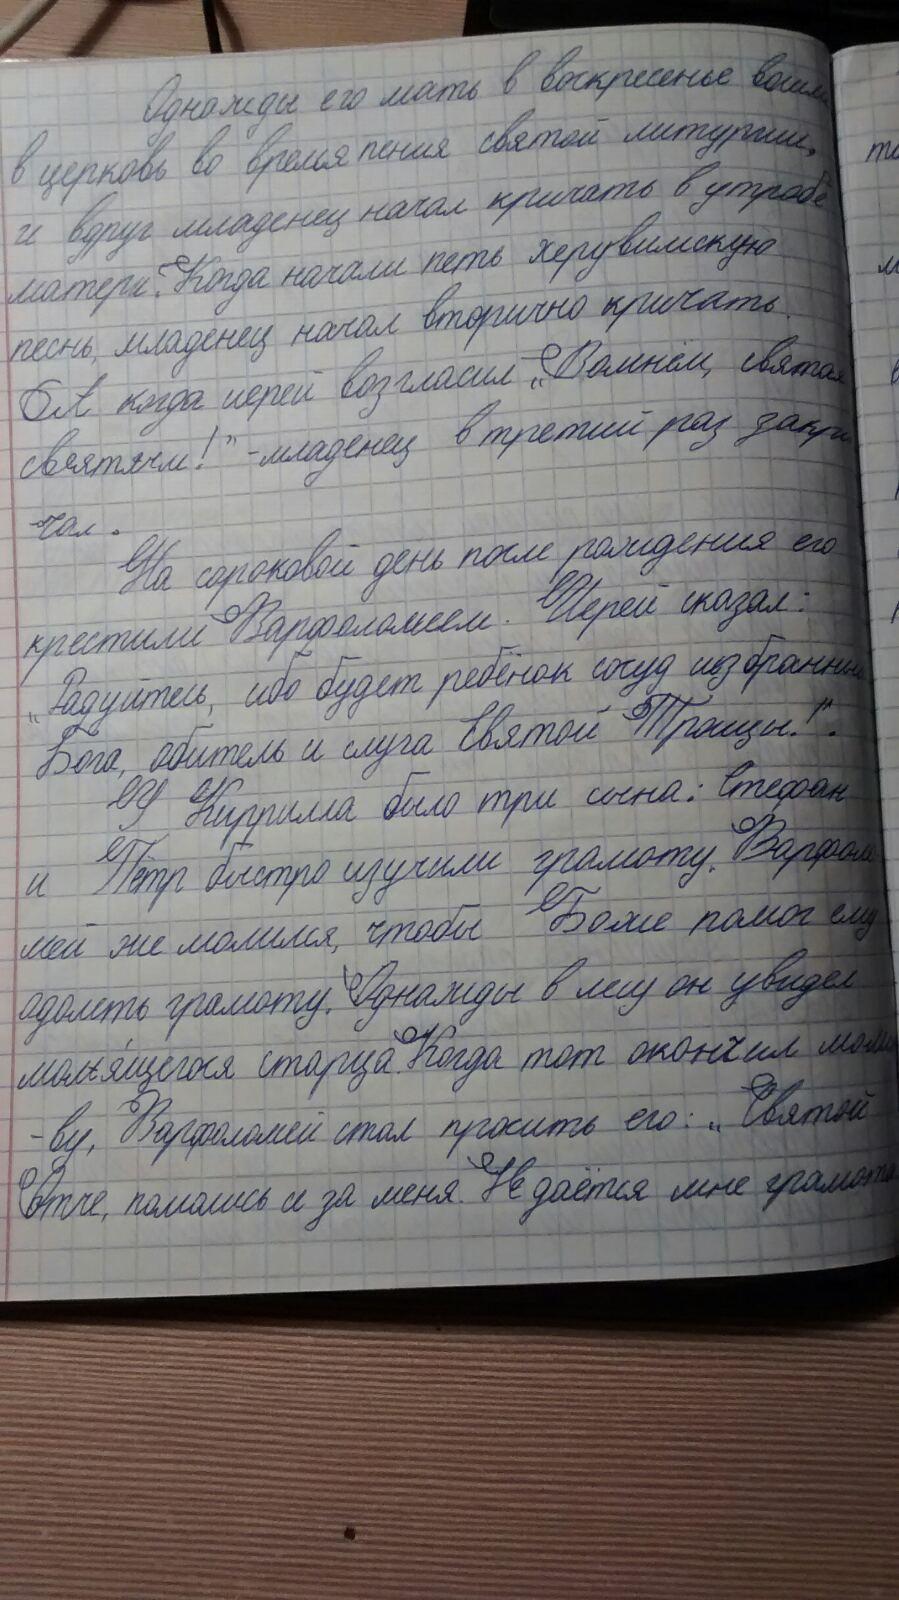 Однажды его мать в воскресенье вошла
в церковь во время пения святой литургии,
и вдруг младенец начал кричать в утробе
матери. Когда начали петь херувимскую
песнь, младенец начал вторично кричать.
А когда иерей возгласил „Вомнем, святая
святым!" - младенец в третий раз закри
-чал.
На сороковой день после рождения его
крестили Варфоломеем. Иерей сказал:
„Радуйтесь, ибо будет ребёнок сосуд избранный
Бога, обитель и слуга Святой Троицы!".
У Кирилла было три сына: Стефан
и Пётр быстро изучили грамоту. Варфоло
мей же молился, чтобы Боже помог ему
одолеть грамоту. Однажды в лесу он увидел
молящегося старца. Когда тот окончил молит
-ву, Варфоломей стал просить его: „Святой
Отче, помолись и за меня. Не даётся мне грамота